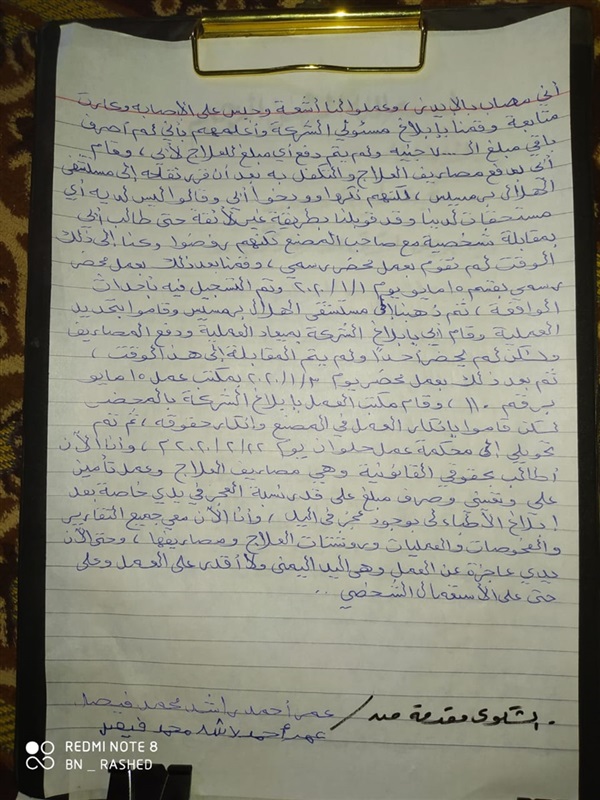 أني مصاب بالإيدين، وعملوا لنا أشعة وجبس على الإصابة وعايزت
متابعة وقمنا بإبلاغ مسئولي الشركة وأعلمهم بأني لم أصرف
باقي مبلغ الـ جنيه ولم يتم دفع أي مبلغ للعلاج لأبي، وقام
أبي بدفع مصاريف العلاج والتكفل به بعد أن قرر نقله إلى مستشفى
الهلال برمسيس، لكنهم نكروا ووبخوا أبي وقالوا ليس لديه أي
مستحقات لدينا وقد قوبلنا بطريقة غير لائقة حتى طالب أبي
بمقابلة شخصية مع صاحب المصنع لكنهم رفضوا وكنا إلى ذلك
الوقت لم نقوم بعمل محضر رسمي، وقمنا بعد ذلك بعمل محضر
رسمي بقسم ١٥ مايو يوم ٢٠٢٠/١/١ وتم التسجيل فيه بأحداث
الواقعة، ثم ذهبنا إلى مستشفى الهلال برمسيس وقاموا بتحديد
العملية وقام أبي بإبلاغ الشركة بميعاد العملية ودفع المصاريف
ولكن لم يحضر أحداً ولم يتم المقابلة إلى هذا الوقت،
ثم بعد ذلك بعمل محضر يوم ٢٠٢٠/١/٣ بمكتب عمل ١٥ مايو
برقم ١١٠، وقام مكتب العمل بإبلاغ الشركة بالمحضر
لكن قاموا بإنكار العمل في المصنع وإنكار حقوقه، ثم تم
تحويلي إلى محكمة عمل حلوان يوم ٢٠٢٠/٢/٢٢م، وأنا الآن
أطالب بحقوقي القانونية وهي مصاريف العلاج وعمل تأمين
علي ونفسي وصرف مبلغ على قدر نسبة العجز في يدي خاصة بعد
إبلاغ الأطباء لي بوجود عجز في اليد، وأنا الآن معي جميع التقارير
والفحوصات والعمليات وروشتات العلاج ومصاريفها، وحتى الآن
يدي عاجزة عن العمل وهي اليد اليمنى ولا أقدر على العمل وعلى
حتى على الاستعمال الشخصي..
الشكوى مقدمة من / عمر أحمد راشد محمد فيصل
عمر أحمد راشد محمد فيصل
REDMI NOTE 8
BN _ RASHED